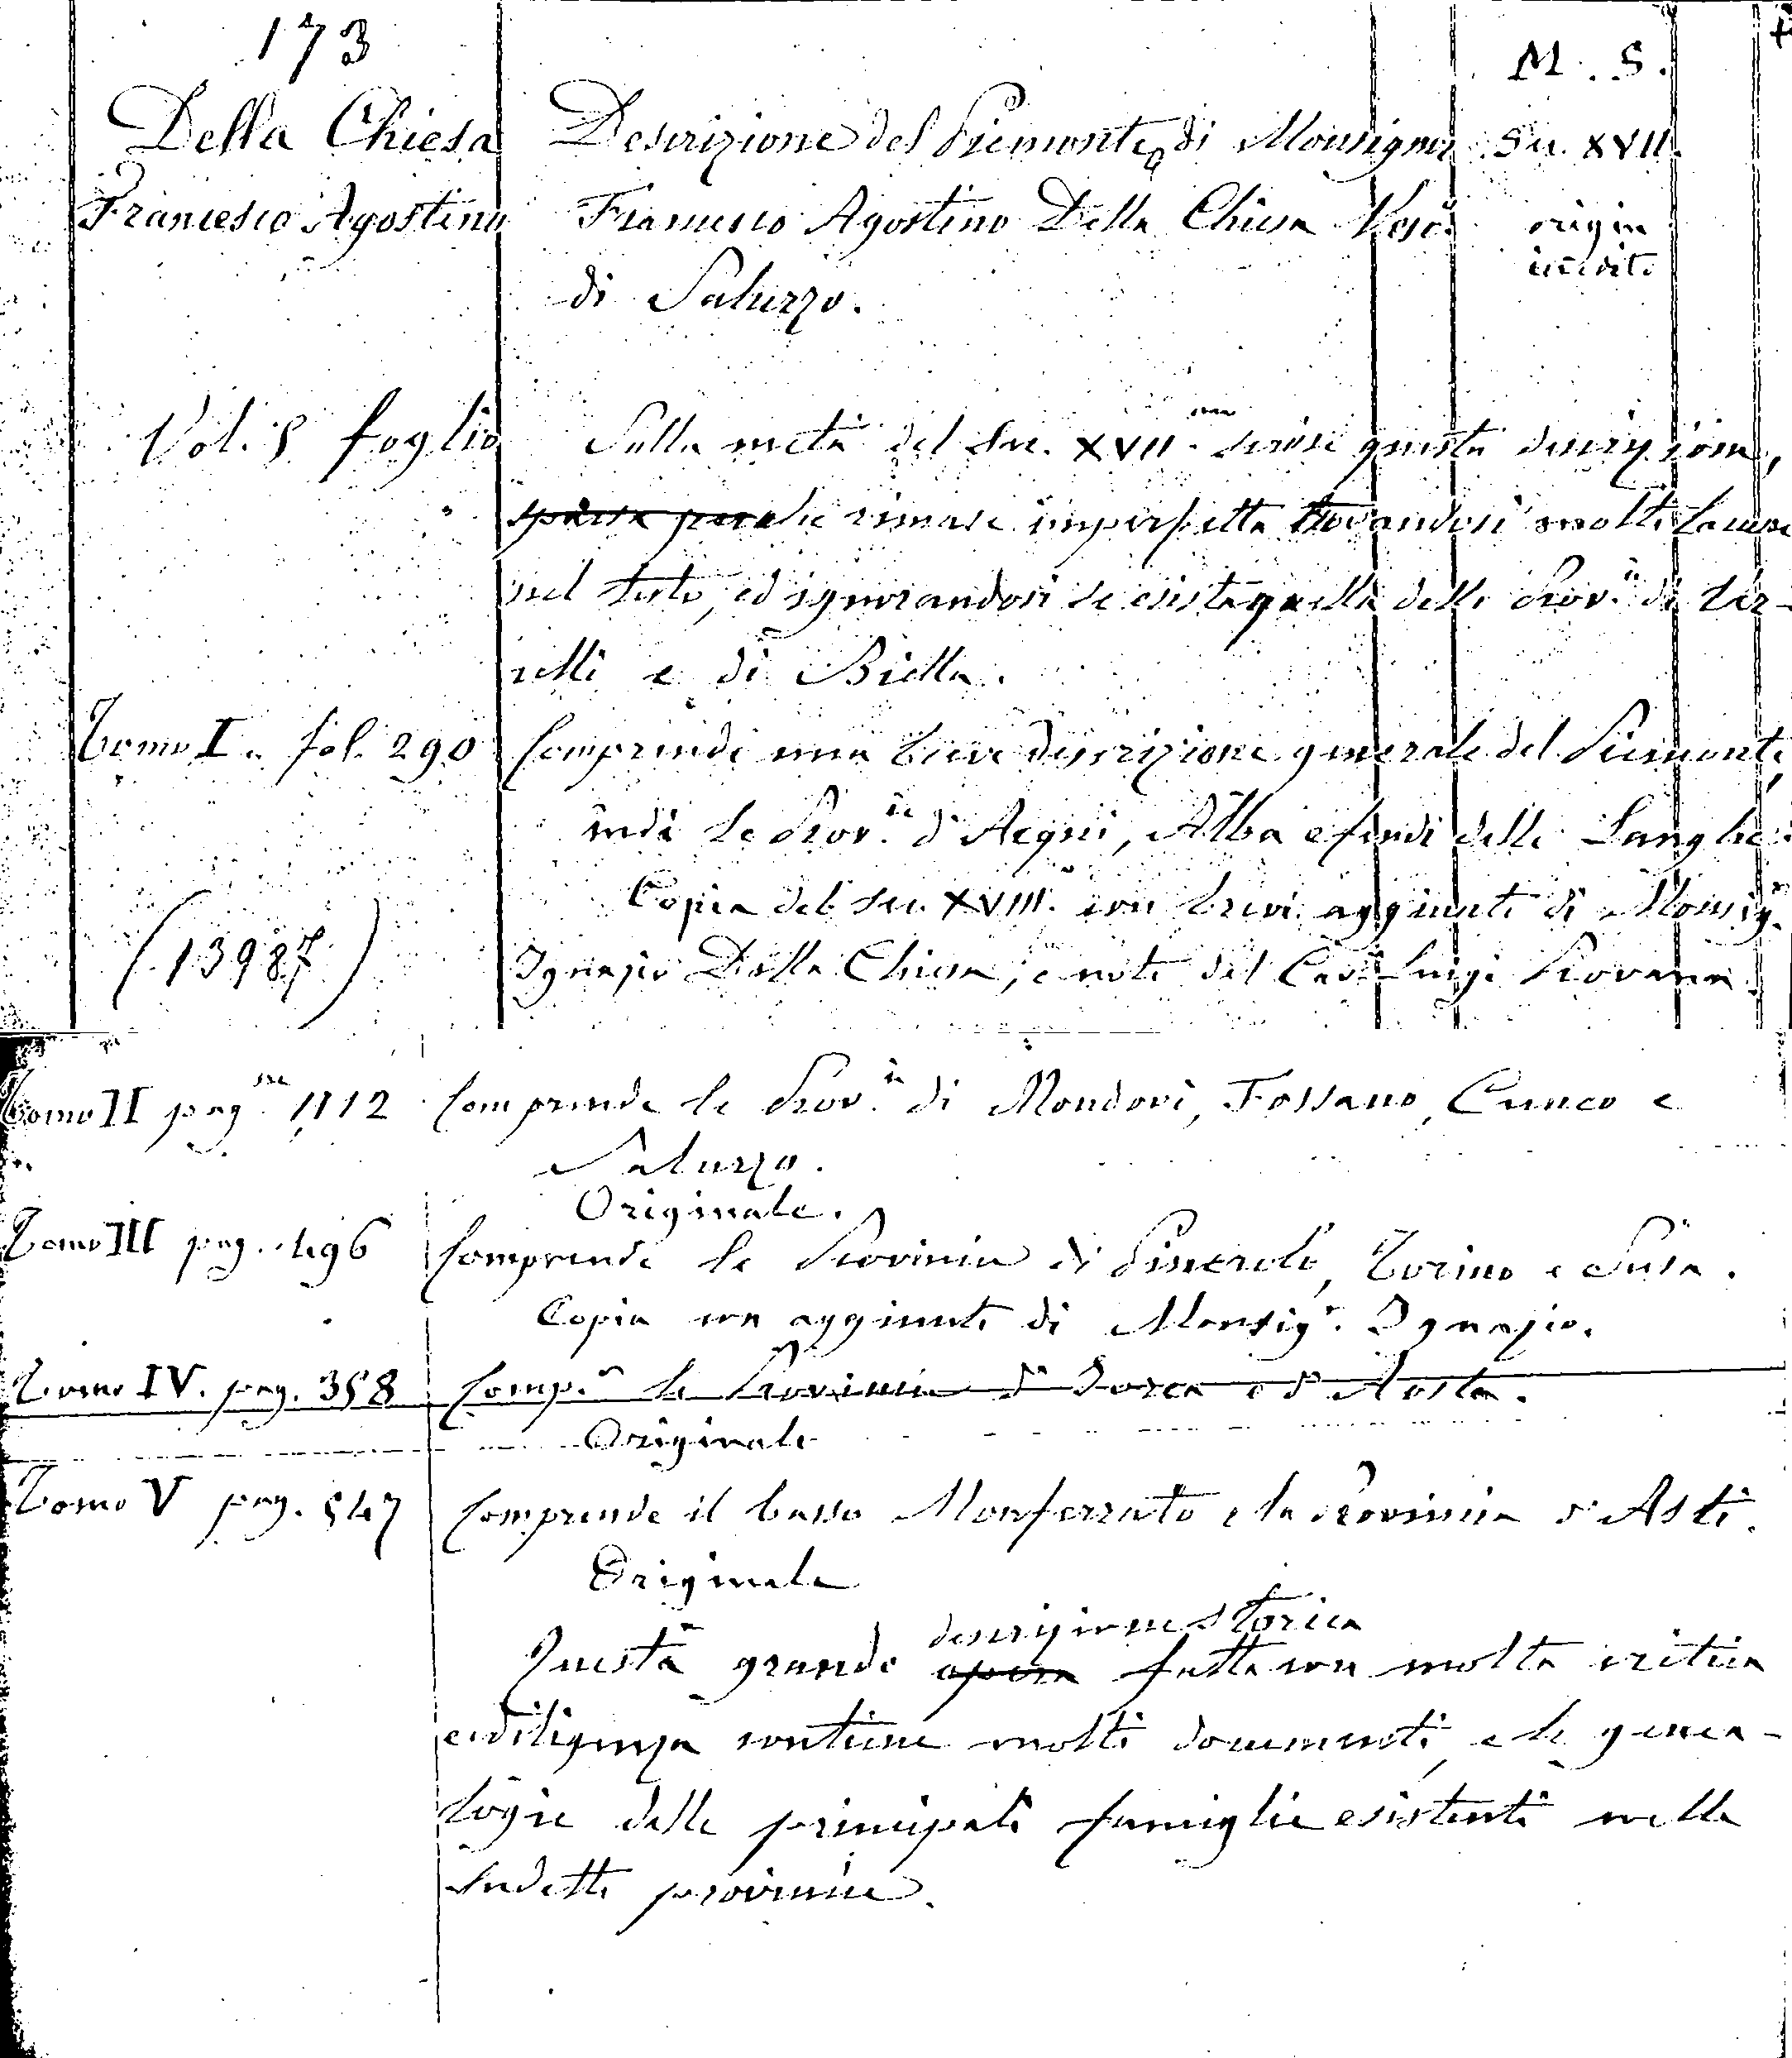 173
M. S.
Della Chiesa
Descrizione del Piemonte di Monsignor
Sec. XVII.
Francesco Agostino
Francesco Agostino Della Chiesa Vesc.
origin
inedito
di Saluzzo.
Vol. 5 foglio
Sulla metà del Sec. XVII. scrisse questa descrizione,
che rimase imperfetta trovandosi molte lacune
nel testo, ed ignorandosi se esista quella delle Prov.ie di Ver-
celli e di Biella.
Tomo I. fol. 290
Comprende una breve descrizione generale del Piemonte,
indi le Prov.ie d'Acqui, Alba e feudi delle Langhe.
Copia del sec. XVIII. con brevi aggiunte di Monsig.r
(13987)
Ignazio Della Chiesa, e note del Cav. Luigi Provana.
Tomo II pag.ne 1112
Comprende le Prov.ie di Mondovì, Fossano, Cuneo e
Saluzzo.
Originale.
Tomo III pag. 496
Comprende le Provincie di Pinerolo, Torino e Susa.
Copia con aggiunte di Monsig.r Ignazio.
Tomo IV. pag. 358
Comp.e le Provincie d'Ivrea e d'Aosta.
Originale
Tomo V pag. 547
Comprende il basso Monferrato e la Provincia d'Asti.
Originale
descrizione storica
Questa grande opera fatta con molta critica
e diligenza contiene molti documenti, e le genea-
logie delle principali famiglie esistenti nelle
sudette provincie.